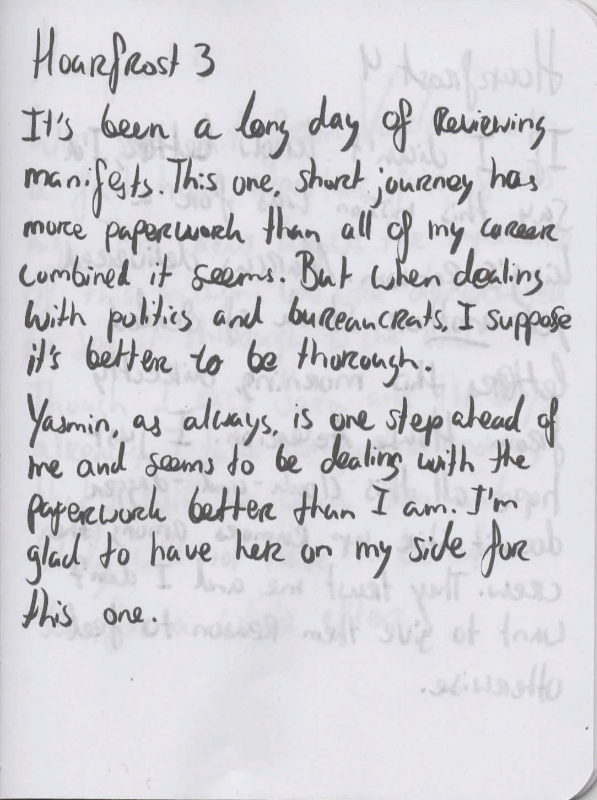 Hoarfrost 3
It's been a long day of reviewing
manifests. This one, short journey has
more paperwork than all of my career
combined it seems. But when dealing
with politics and bureaucrats, I suppose
it's better to be thorough.
Yasmin, as always, is one step ahead of
me and seems to be dealing with the
paperwork better than I am. I'm
glad to have her on my side for
this one.